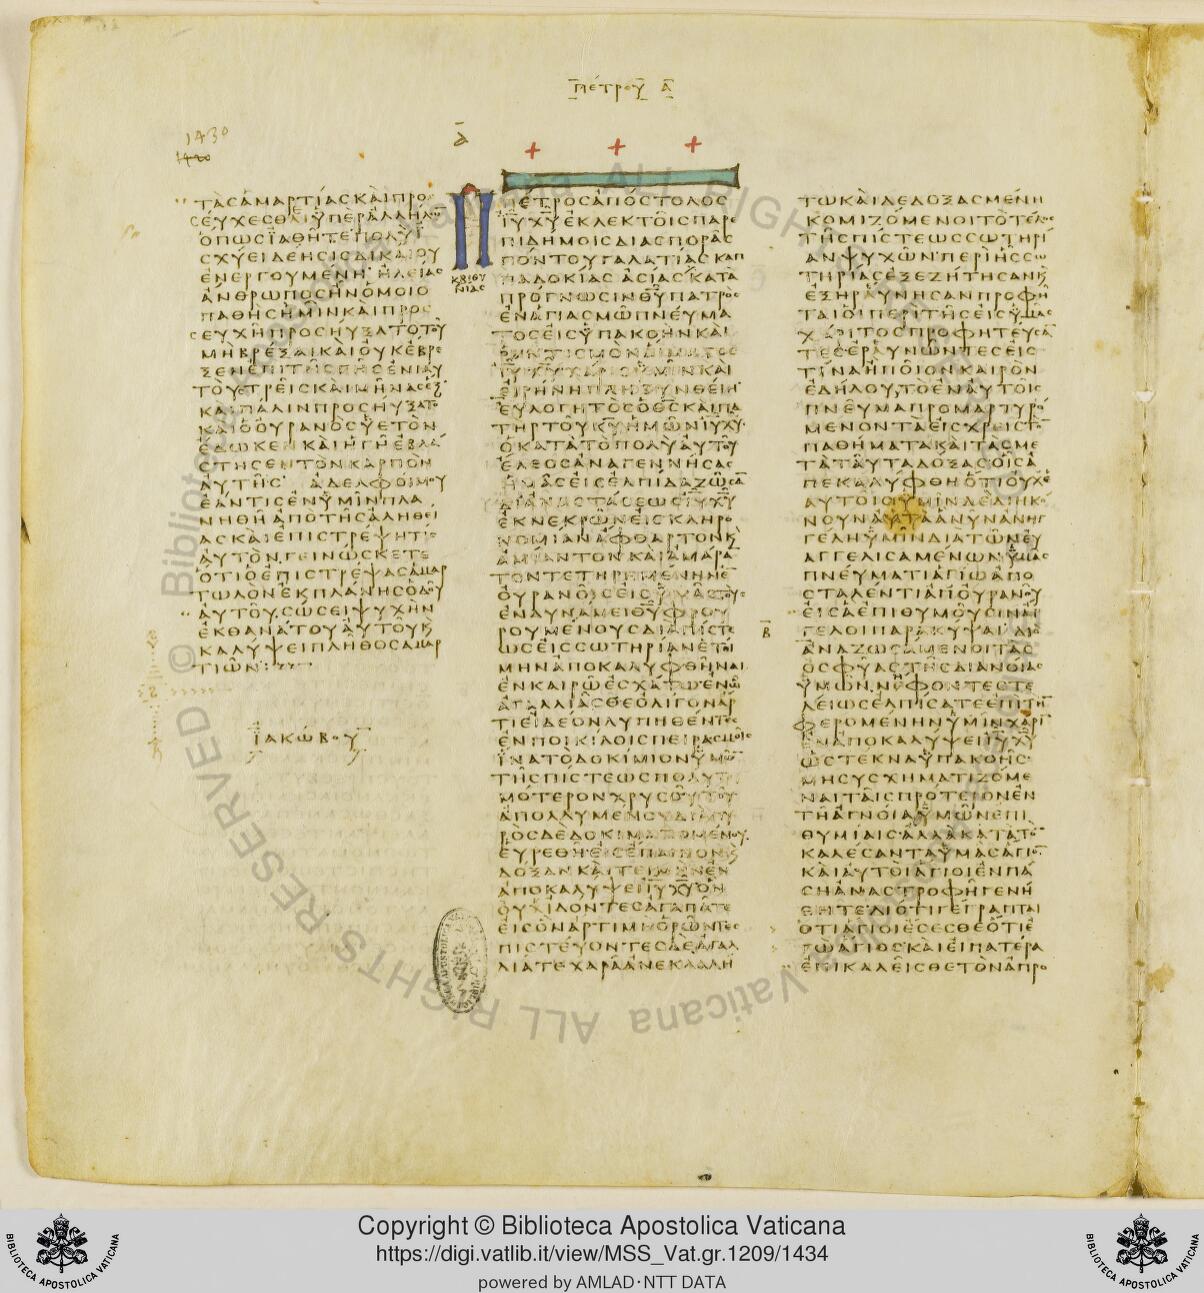 ΠΕΤΡΟΥ Α
1430
Α
ΤΑΣΑΜΑΡΤΙΑΣΚΑΙΠΡΟ
ΣΕΥΧΕΣΘΕΫΠΕΡΑΛΛΗΛΩ
ΟΠΩΣΪΑΘΗΤΕΠΟΛΥΪ
ΣΧΥΕΙΔΕΗΣΙΣΔΙΚΑΙΟΥ
ΕΝΕΡΓΟΥΜΕΝΗΗΛΕΙΑΣ
ΑΝΘΡΩΠΟΣΗΝΟΜΟΙΟ
ΠΑΘΗΣΗΜΙΝΚΑΙΠΡΟΣ
ΣΕΥΧΗΠΡΟΣΗΥΞΑΤΟΤΟΥ
ΜΗΒΡΕΞΑΙΚΑΙΟΥΚΕΒΡΕ
ΞΕΝΕΠΙΤΗΣΓΗΣΕΝΙΑΥ
ΤΟΥΣΤΡΕΙΣΚΑΙΜΗΝΑΣΕΞ
ΚΑΙΠΑΛΙΝΠΡΟΣΗΥΞΑΤΟ
ΚΑΙΟΟΥΡΑΝΟΣΥΕΤΟΝ
ΕΔΩΚΕΝΚΑΙΗΓΗΕΒΛΑ
ΣΤΗΣΕΝΤΟΝΚΑΡΠΟΝ
ΑΥΤΗΣ ΑΔΕΛΦΟΙΜΟΥ
ΕΑΝΤΙΣΕΝΥΜΙΝΠΛΑ
ΝΗΘΗΑΠΟΤΗΣΑΛΗΘΕΙ
ΑΣΚΑΙΕΠΙΣΤΡΕΨΗΤΙΣ
ΑΥΤΟΝ·ΓΕΙΝΩΣΚΕΤΕ
ΟΤΙΟΕΠΙΣΤΡΕΨΑΣΑΜΑΡ
ΤΩΛΟΝΕΚΠΛΑΝΗΣΟΔΟΥ
ΑΥΤΟΥ·ΣΩΣΕΙΨΥΧΗΝ
ΕΚΘΑΝΑΤΟΥΑΥΤΟΥΚ
ΚΑΛΥΨΕΙΠΛΗΘΟΣΑΜΑΡ
ΤΙΩΝ
ΪΑΚΩΒΟΥ
ΠΕΤΡΟΣΑΠΟΣΤΟΛΟΣ
ΙΥΧΥΕΚΛΕΚΤΟΙΣΠΑΡΕ
ΠΙΔΗΜΟΙΣΔΙΑΣΠΟΡΑΣ
ΠΟΝΤΟΥΓΑΛΑΤΙΑΣΚΑΠ
ΠΑΔΟΚΙΑΣΑΣΙΑΣΚΑΤΑ
ΠΡΟΓΝΩΣΙΝΘΥΠΑΤΡΟΣ
ΕΝΑΓΙΑΣΜΩΠΝΕΥΜΑ
ΤΟΣΕΙΣΥΠΑΚΟΗΝΚΑΙ
ΡΑΝΤΙΣΜΟΝΑΙΜΑΤΟΣ
ΙΥΧΥΧΑΡΙΣΥΜΙΝΚΑΙ
ΕΙΡΗΝΗΠΛΗΘΥΝΘΕΙΗ
ΕΥΛΟΓΗΤΟΣΟΘΣΚΑΙΠΑ
ΤΗΡΤΟΥΚΥΗΜΩΝΙΥΧΥ
ΟΚΑΤΑΤΟΠΟΛΥΑΥΤΟΥ
ΕΛΕΟΣΑΝΑΓΕΝΝΗΣΑΣ
ΗΜΑΣΕΙΣΕΛΠΙΔΑΖΩΣΑ
ΔΙΑΝΑΣΤΑΣΕΩΣΙΥΧΥ
ΕΚΝΕΚΡΩΝΕΙΣΚΛΗΡΟ
ΝΟΜΙΑΝΑΦΘΑΡΤΟΝΚ
ΑΜΙΑΝΤΟΝΚΑΙΑΜΑΡΑ
ΤΟΝΤΕΤΗΡΗΜΕΝΗΝΕ
ΟΥΡΑΝΟΙΣΕΙΣΥΜΑΣΤΟΥΣ
ΕΝΔΥΝΑΜΕΙΘΥΦΡΟΥ
ΡΟΥΜΕΝΟΥΣΔΙΑΠΙΣΤΕ
ΩΣΕΙΣΣΩΤΗΡΙΑΝΕΤΟΙ
ΜΗΝΑΠΟΚΑΛΥΦΘΗΝΑΙ
ΕΝΚΑΙΡΩΕΣΧΑΤΩΕΝΩ
ΑΓΑΛΛΙΑΣΘΕΟΛΙΓΟΝΑΡ
ΤΙΕΙΔΕΟΝΛΥΠΗΘΕΝΤΕΣ
ΕΝΠΟΙΚΙΛΟΙΣΠΕΙΡΑΣΜΟΙΣ
ΪΝΑΤΟΔΟΚΙΜΙΟΝΥΜΩ
ΤΗΣΠΙΣΤΕΩΣΠΟΛΥΤΙ
ΜΟΤΕΡΟΝΧΡΥΣΟΥΤΟΥ
ΑΠΟΛΛΥΜΕΝΟΥΔΙΑΠΥ
ΡΟΣΔΕΔΟΚΙΜΑΖΟΜΕΝΟΥ
ΕΥΡΕΘΗΕΙΣΕΠΑΙΝΟΝΚ
ΔΟΞΑΝΚΑΙΤΕΙΜΗΝΕΝ
ΑΠΟΚΑΛΥΨΕΙΙΥΧΥΟΝ
ΟΥΚΙΔΟΝΤΕΣΑΓΑΠΑΤΕ
ΕΙΣΟΝΑΡΤΙΜΗΟΡΩΝΤΕΣ
ΠΙΣΤΕΥΟΝΤΕΣΔΕΑΓΑΛ
ΛΙΑΤΕΧΑΡΑΑΝΕΚΛΑΛΗ
ΤΩΚΑΙΔΕΔΟΞΑΣΜΕΝΗ
ΚΟΜΙΖΟΜΕΝΟΙΤΟΤΕΛΟΣ
ΤΗΣΠΙΣΤΕΩΣΣΩΤΗΡΙ
ΑΝΨΥΧΩΝ·ΠΕΡΙΗΣΣΩ
ΤΗΡΙΑΣΕΞΕΖΗΤΗΣΑΝΚ
ΕΞΗΡΑΥΝΗΣΑΝΠΡΟΦΗ
ΤΑΙΟΙΠΕΡΙΤΗΣΕΙΣΥΜΑΣ
ΧΑΡΙΤΟΣΠΡΟΦΗΤΕΥΣΑ
ΤΕΣΕΡΑΥΝΩΝΤΕΣΕΙΣ
ΤΙΝΑΗΠΟΙΟΝΚΑΙΡΟΝ
ΕΔΗΛΟΥΤΟΕΝΑΥΤΟΙΣ
ΠΝΕΥΜΑΠΡΟΜΑΡΤΥΡΟ
ΜΕΝΟΝΤΑΕΙΣΧΡΕΙΣΤΟ
ΠΑΘΗΜΑΤΑΚΑΙΤΑΣΜΕ
ΤΑΤΑΥΤΑΔΟΞΑΣΟΙΣΑ
ΠΕΚΑΛΥΦΘΗΟΤΙΟΥΧΕ
ΑΥΤΟΙΣΥΜΙΝΔΕΔΙΗΚΟ
ΝΟΥΝΑΥΤΑΑΝΥΝΑΝΗΓ
ΓΕΛΗΥΜΙΝΔΙΑΤΩΝΕΥ
ΑΓΓΕΛΙΣΑΜΕΝΩΝΥΜΑΣ
ΠΝΕΥΜΑΤΙΑΓΙΩΑΠΟ
ΣΤΑΛΕΝΤΙΑΠΟΥΡΑΝΟΥ
ΕΙΣΑΕΠΙΘΥΜΟΥΣΙΝΑΓ
ΓΕΛΟΙΠΑΡΑΚΥΨΑΙΔΙΟ
ΑΝΑΖΩΣΑΜΕΝΟΙΤΑΣ
ΟΣΦΥΑΣΤΗΣΔΙΑΝΟΙΑΣ
ΥΜΩΝ·ΝΗΦΟΝΤΕΣΤΕ
ΛΕΙΩΣΕΛΠΙΣΑΤΕΕΠΙΤΗ
ΦΕΡΟΜΕΝΗΝΥΜΙΝΧΑΡΙ
ΕΝΑΠΟΚΑΛΥΨΕΙΙΥΧΥ
ΩΣΤΕΚΝΑΥΠΑΚΟΗΣ
ΜΗΣΥΣΧΗΜΑΤΙΖΟΜΕ
ΝΑΙΤΑΙΣΠΡΟΤΕΡΟΝΕΝ
ΤΗΑΓΝΟΙΑΥΜΩΝΕΠΙ
ΘΥΜΙΑΙΣ·ΑΛΛΑΚΑΤΑΤΟ
ΚΑΛΕΣΑΝΤΑΥΜΑΣΑΓΙΟ
ΚΑΙΑΥΤΟΙΑΓΙΟΙΕΝΠΑ
ΣΗΑΝΑΣΤΡΟΦΗΓΕΝΗ
ΘΗΤΕΔΙΟΤΙΓΕΓΡΑΠΤΑΙ
ΟΤΙΑΓΙΟΙΕΣΕΣΘΕΟΤΙΕ
ΓΩΑΓΙΟΣ·ΚΑΙΕΙΠΑΤΕΡΑ
ΕΠΙΚΑΛΕΙΣΘΕΤΟΝΑΠΡΟ
Copyright © Biblioteca Apostolica Vaticana
https://digi.vatlib.it/view/MSS_Vat.gr.1209/1434
powered by AMLAD·NTT DATA